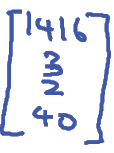 1416
3
2
40